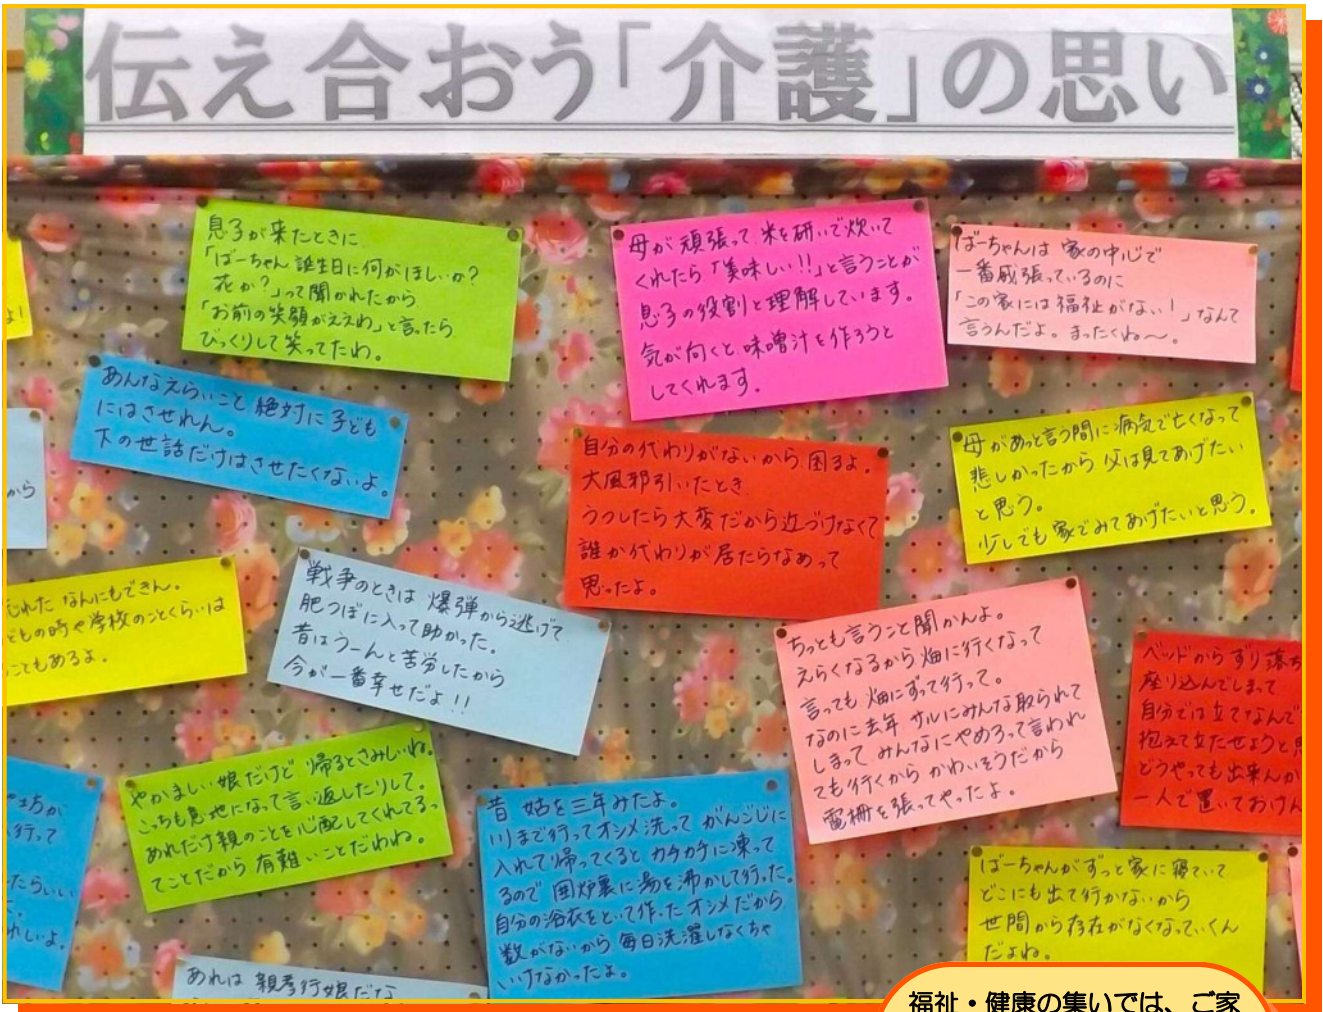 伝え合おう「介護」の思い
息子が来たときに
「ばーちゃん 誕生日に何がほしいか?
花か?」って聞かれたから
「お前の笑顔がええわ」と言ったら
びっくりして笑ってたわ。
母が頑張って 米を研いで炊いて
くれたら「美味しい!!」と言うことが
息子の役割と理解しています。
気が向くと味噌汁を作ろうと
してくれます。
ばーちゃんは 家の中心で
一番威張っているのに
「この家には福祉がない!」なんて
言うんだよ。まったくね〜。
あんなえらいこと 絶対に子ども
にはさせれん。
下の世話だけはさせたくないよ。
自分の代わりがないから 困るよ。
大風邪引いたとき
うつしたら大変だから近づけなくて
誰か代わりが居たらなあって
思ったよ。
母があっと言う間に病気で亡くなって
悲しかったから 父は見てあげたい
と思う。
少しでも家でみてあげたいと思う。
から
れた なんにもできん。
どもの時や学校のことくらいは
こともあるよ。
戦争のときは 爆弾から逃げて
肥つぼに入って助かった。
昔はうーんと苦労したから
今が一番幸せだよ!!
ちっとも言うこと聞かんよ。
えらくなるから畑に行くなって
言っても 畑にずって行って。
なのに去年 サルにみんな取られて
しまって みんなにやめろって言われ
ても行くから かわいそうだから
電柵を張ってやったよ。
ベッドからずり落ち
座り込んでしまって
自分では立てなんで
抱えて立たせようと思
どうやっても出来んか
一人で置いておけん
やかましい娘だけど 帰るとさみしいね。
こっちも意地になって言い返したりして。
あれだけ親のことを心配してくれてるっ
てことだから 有難いことだわね。
昔 姑を三年みたよ。
川まで行ってオシメ洗って がんごじに
入れて帰ってくると カチカチに凍って
るので 囲炉裏に湯を沸かして行った。
自分の浴衣をといて作ったオシメだから
数がないから 毎日洗濯しなくちゃ
いけなかったよ。
坊が
行って
たらいい
ばーちゃんがずっと家に寝ていて
どこにも出て行かないから
世間から存在がなくなっていくん
だよね。
あれは 親孝行娘だな
福祉・健康の集いでは、ご家